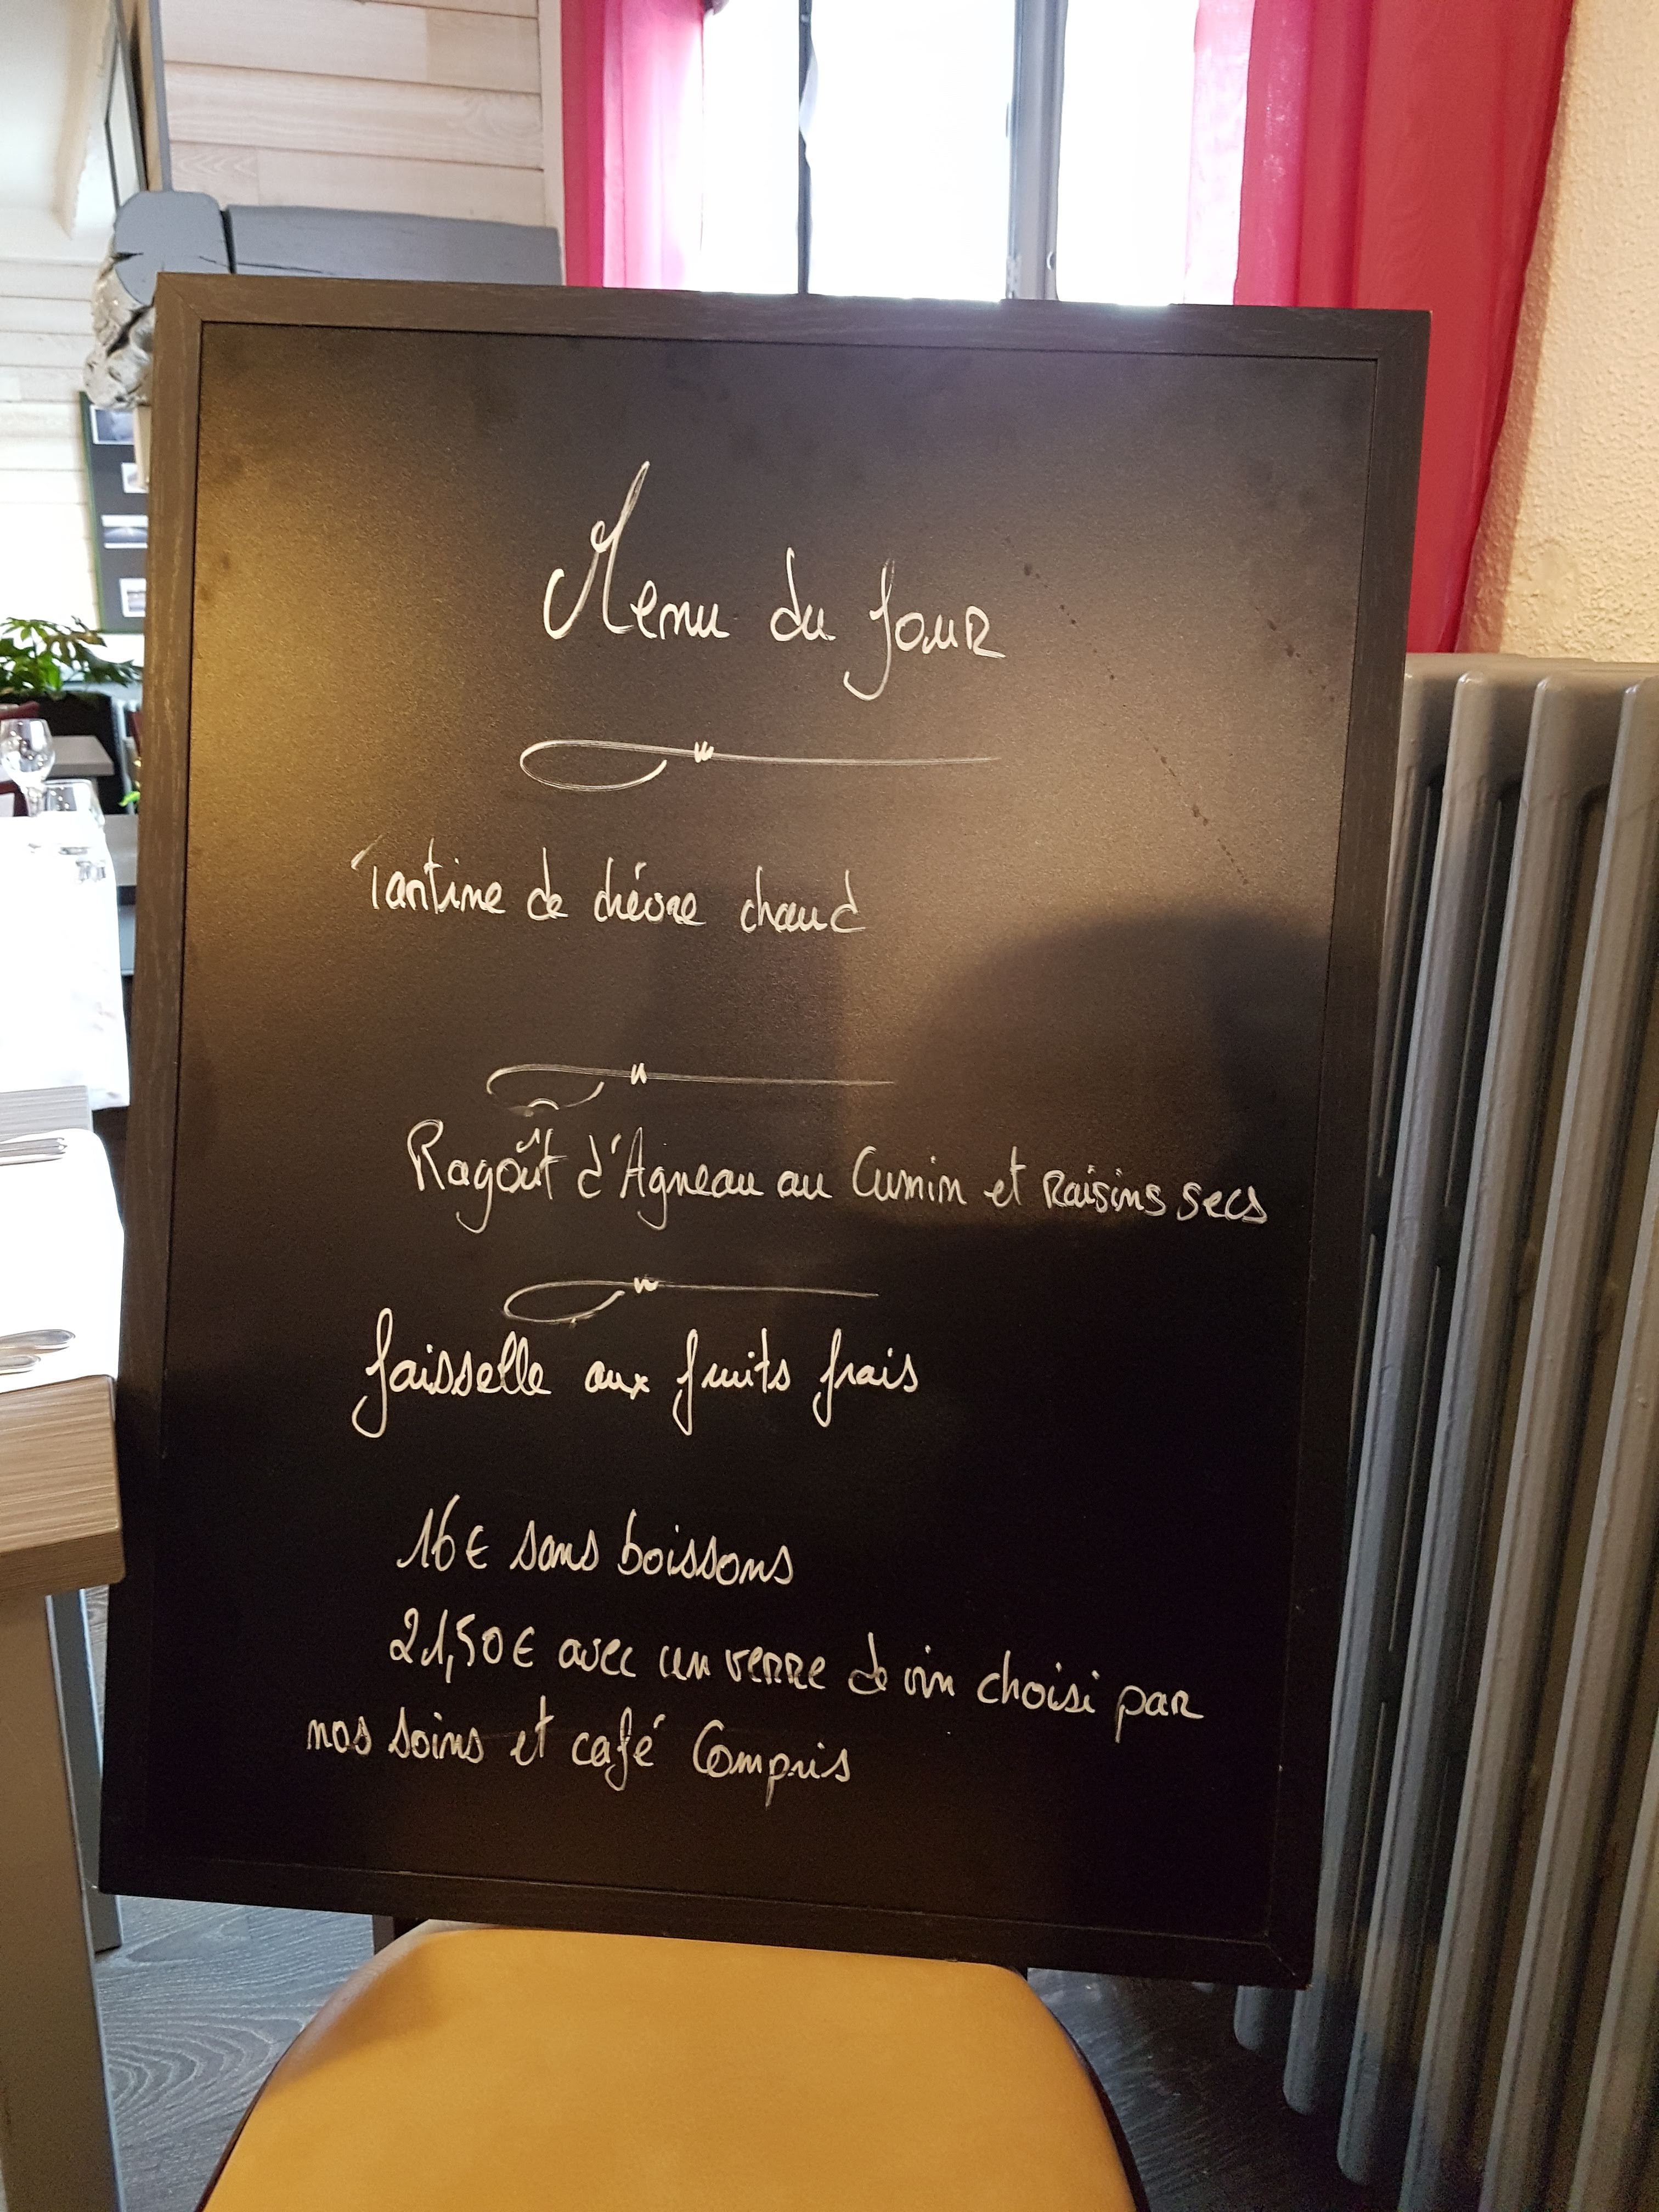 Menu du Jour
Tartine de chèvre chaud
Ragoût d'Agneau au Cumin et Raisins secs
faisselle aux fruits frais
16€ sans boissons
21,50€ avec un verre de vin choisi par
nos soins et café Compris